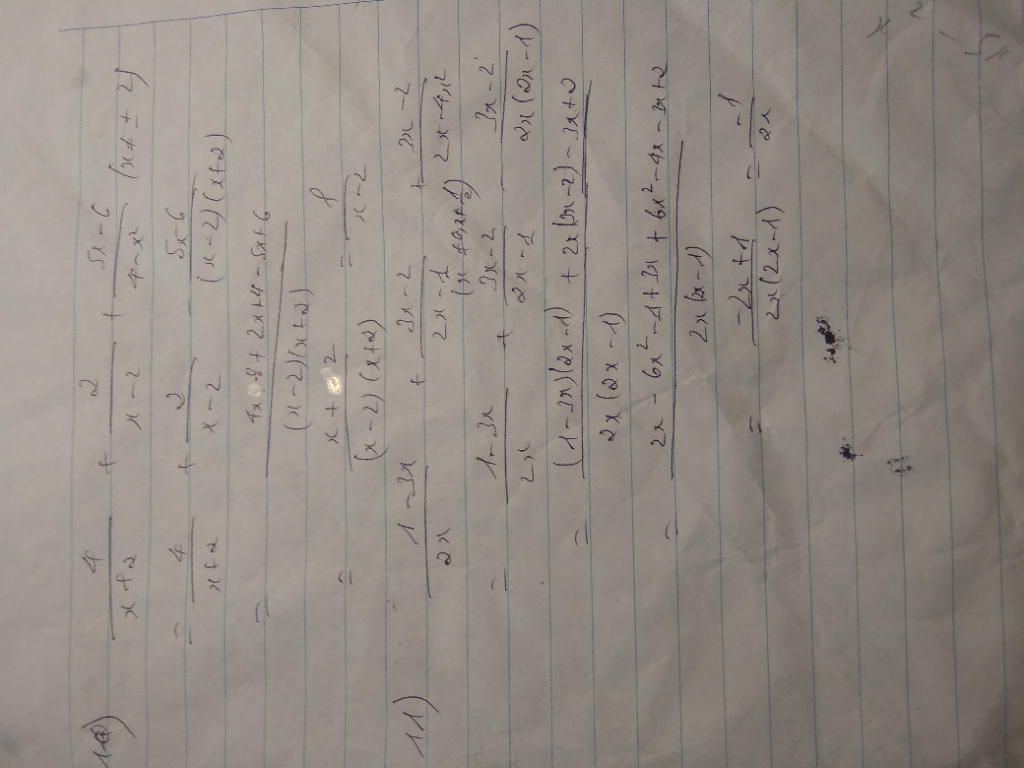 10) 4/(x+2) + 2/(x-2) + (5x-6)/(4-x²) (x≠±2)
= 4/(x+2) + 2/(x-2) - (5x-6)/((x-2)(x+2))
= (4x-8+2x+4-5x+6)/((x-2)(x+2))
= (x+2)/((x-2)(x+2)) = 1/(x-2)
11) (1-3x)/(2x) + (3x-2)/(2x-1) + (3x-2)/(2x-4x²)
= (1-3x)/(2x) + (3x-2)/(2x-1) - (3x-2)/(2x(2x-1))
= ((1-3x)(2x-1) + 2x(3x-2) - 3x+2)/(2x(2x-1))
= (2x-6x²-1+3x+6x²-4x-3x+2)/(2x(2x-1))
= (-2x+1)/(2x(2x-1)) = -1/(2x)